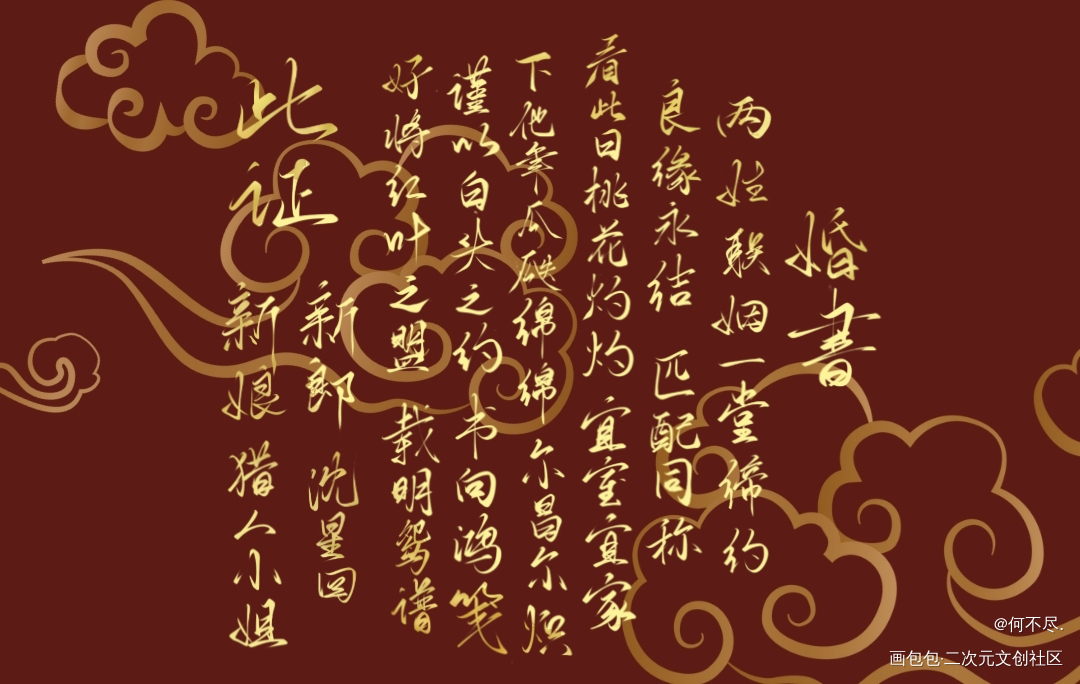 婚书
两姓联姻一堂缔约
良缘永结 匹配同称
看此日桃花灼灼 宜室宜家
卜他年瓜瓞绵绵 尔昌尔炽
谨以白头之约 书向鸿笺
好将红叶之盟 载明鸳谱
此证
新郎 沈星回
新娘 猎人小姐
@何不尽.
画包包·二次元文创社区